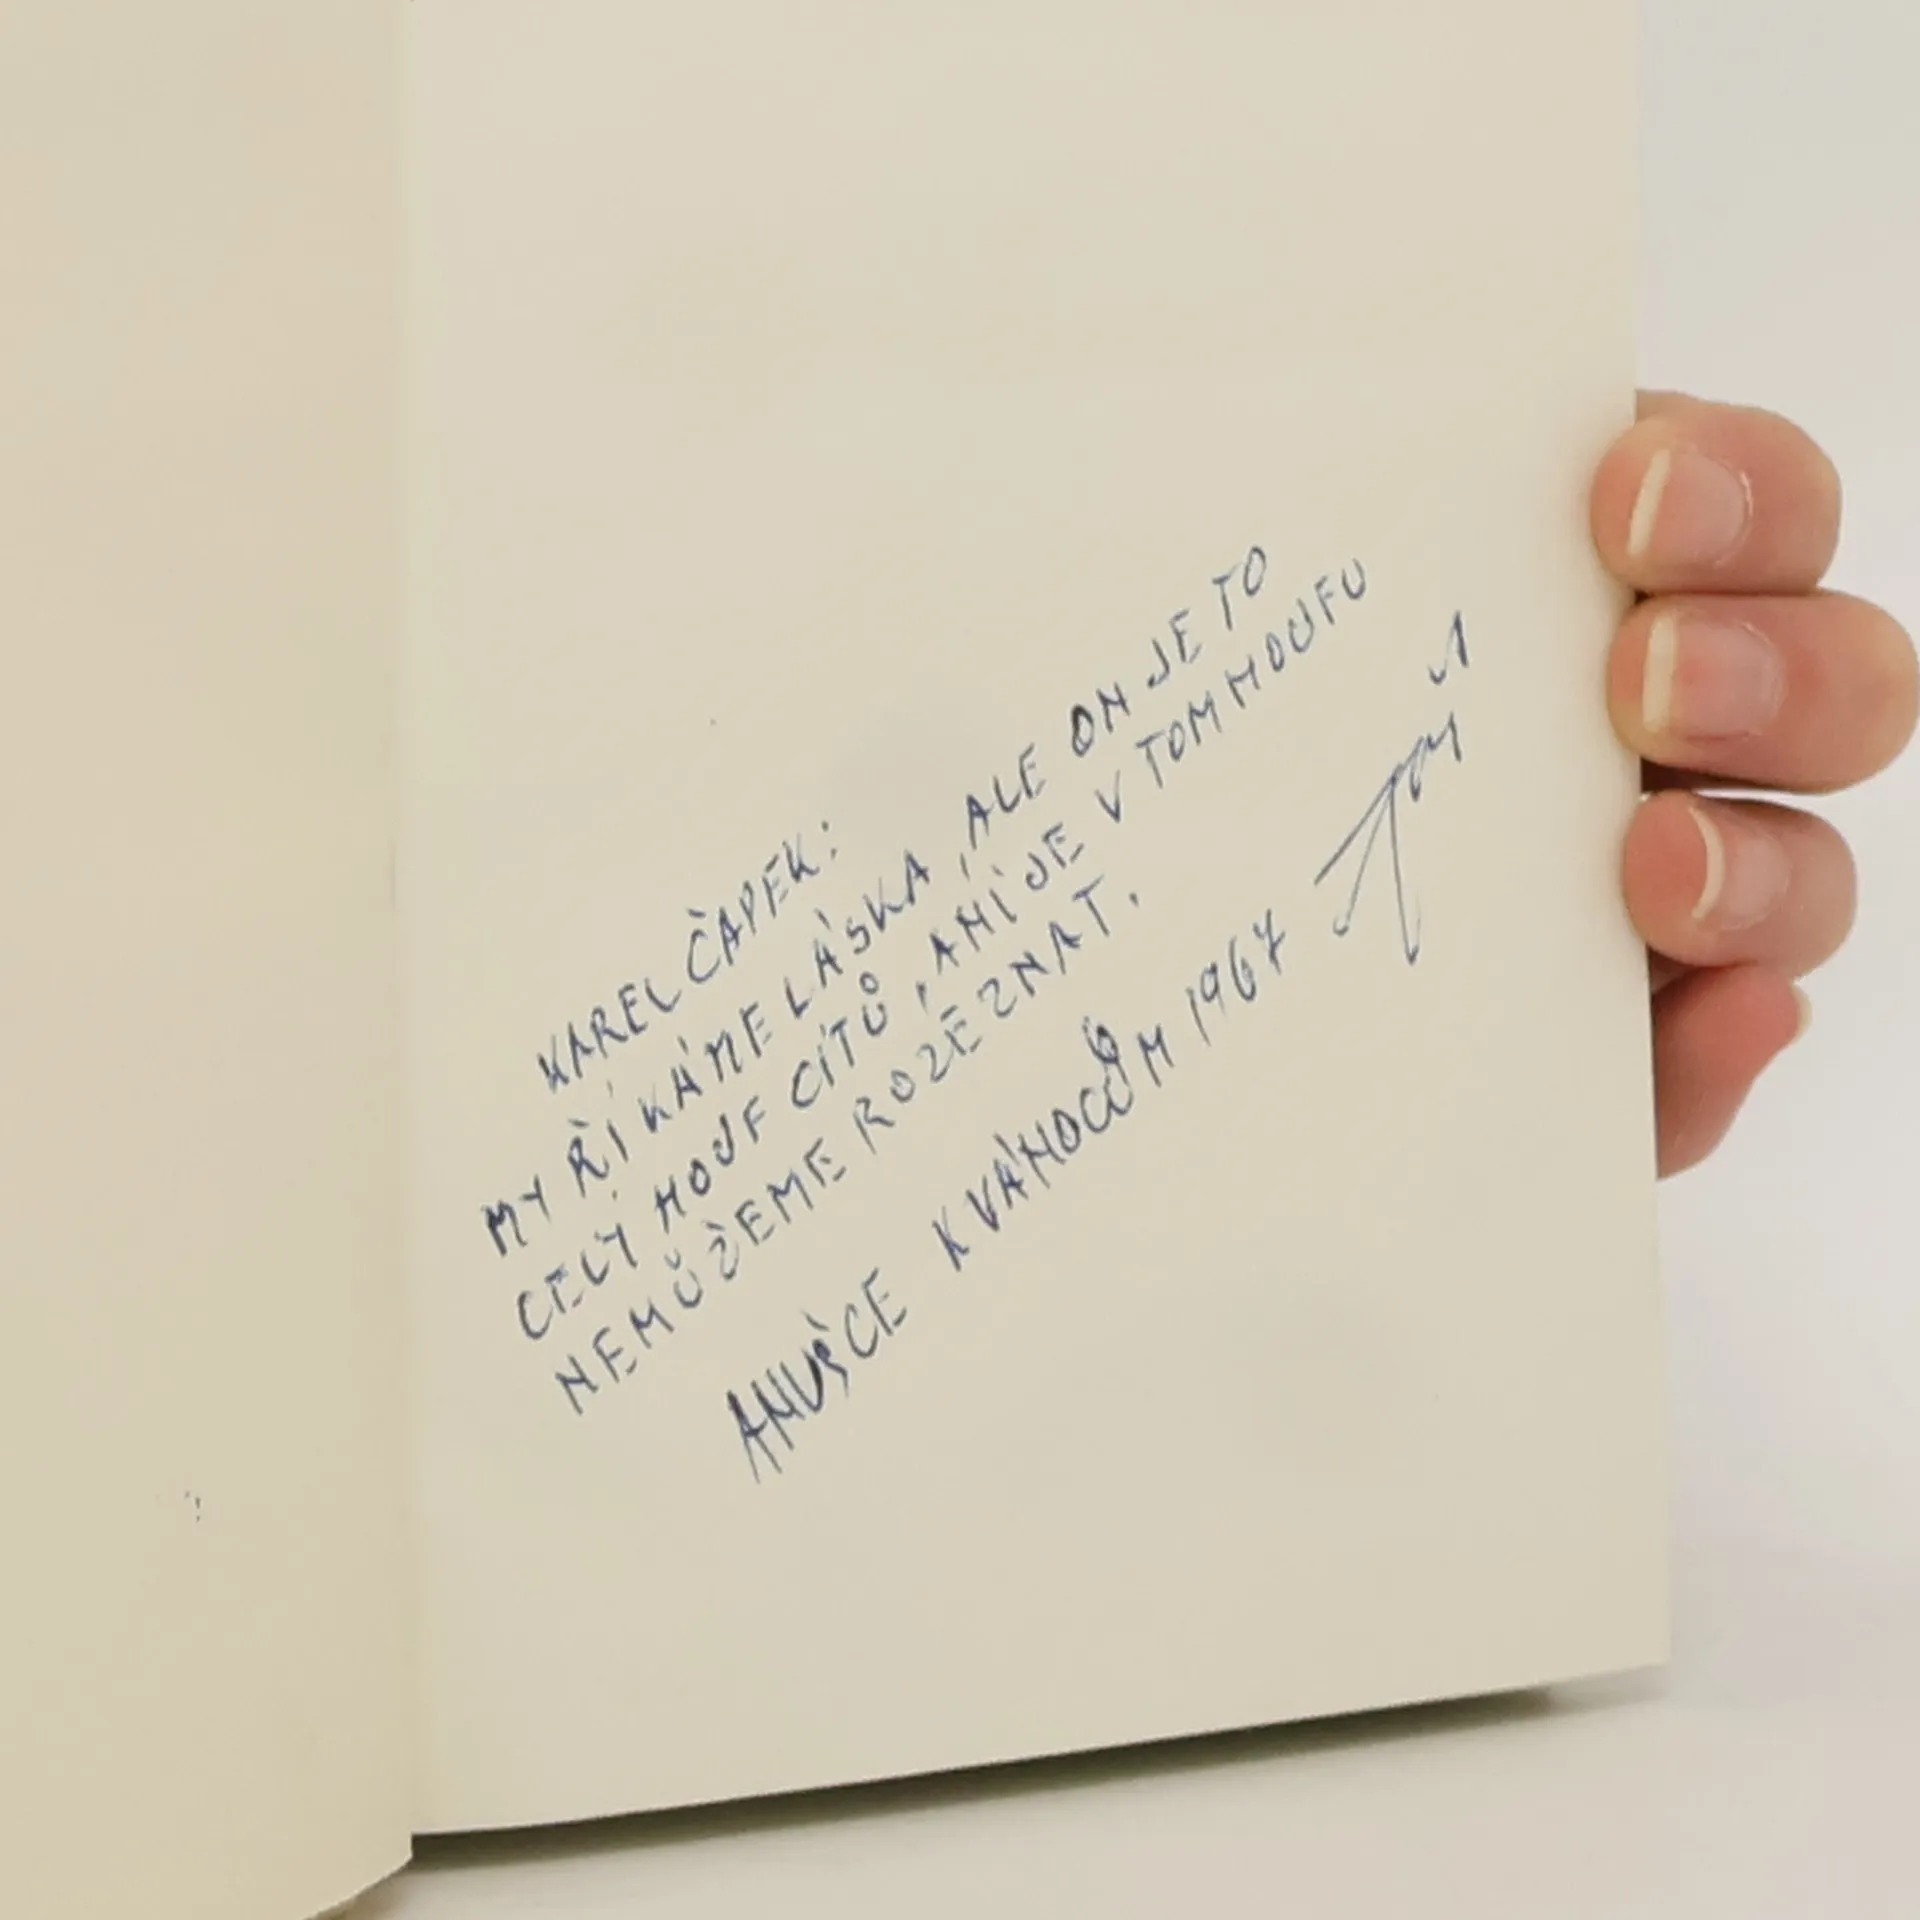 KAREL ČAPEK:
MY ŘÍKÁME LÁSKA, ALE ON JE TO
CELÝ HOUF CITŮ, ANI JE V TOM HOUFU
NEMŮŽEME ROZEZNAT.
ANUŠCE K VÁNOCŮM 1967